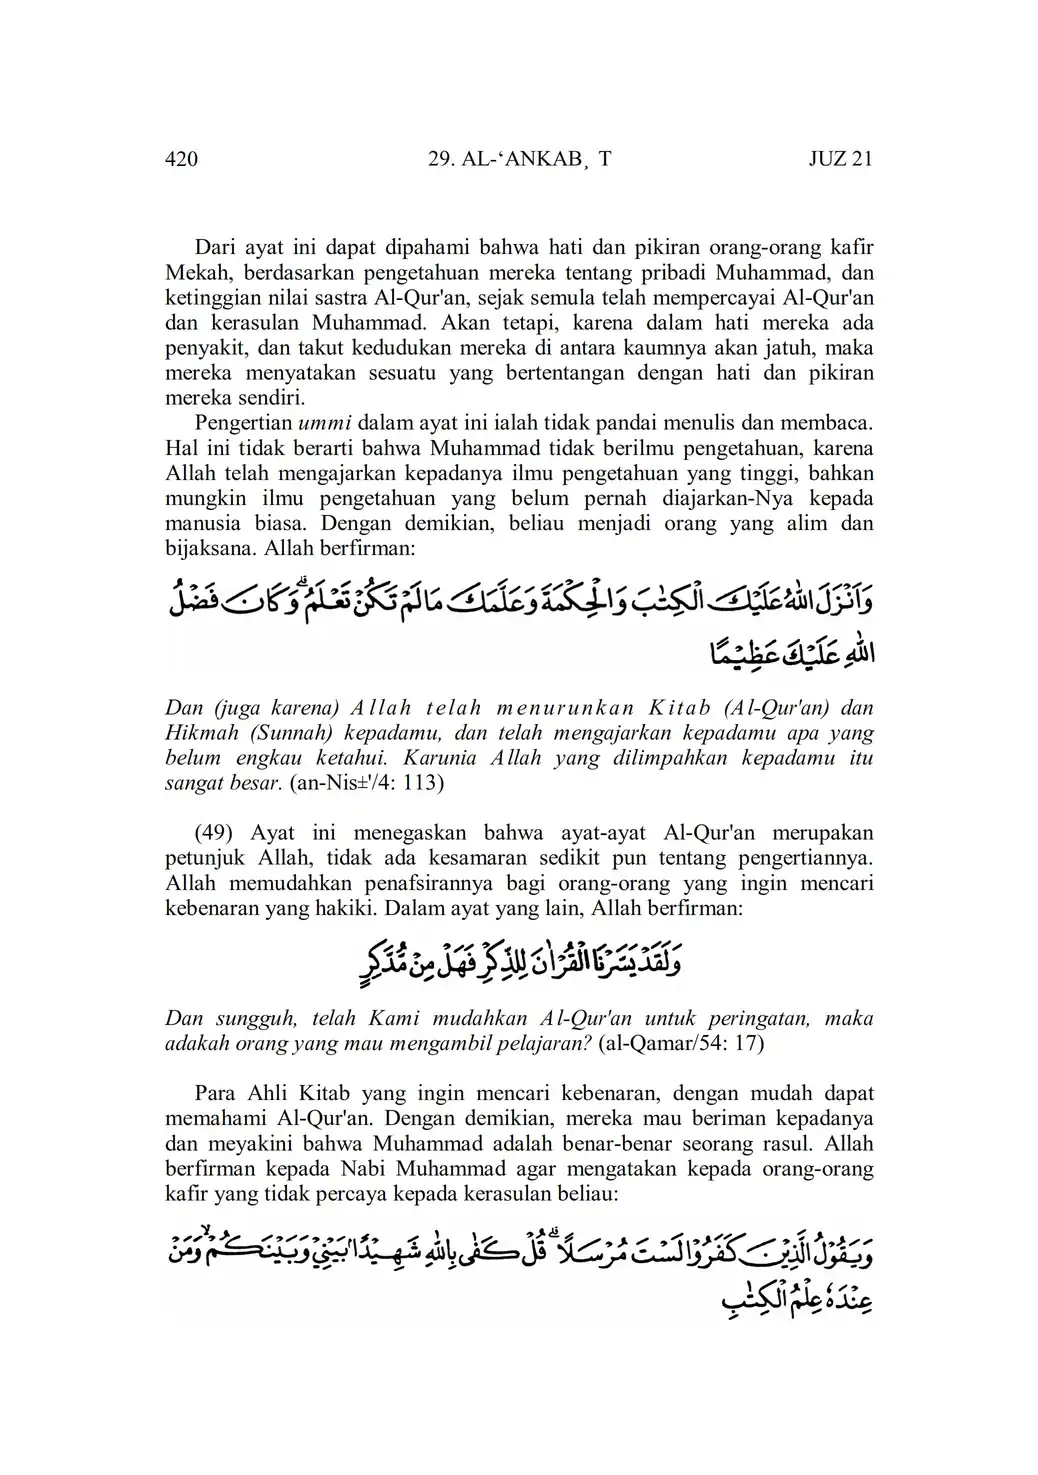 420 29. AL-‘ANKAB¸ T JUZ 21
Dari ayat ini dapat dipahami bahwa hati dan pikiran orang-orang kafir
Mekah, berdasarkan pengetahuan mereka tentang pribadi Muhammad, dan
ketinggian nilai sastra Al-Qur'an, sejak semula telah mempercayai Al-Qur'an
dan kerasulan Muhammad. Akan tetapi, karena dalam hati mereka ada
penyakit, dan takut kedudukan mereka di antara kaumnya akan jatuh, maka
mereka menyatakan sesuatu yang bertentangan dengan hati dan pikiran
mereka sendiri.
Pengertian ummi dalam ayat ini ialah tidak pandai menulis dan membaca.
Hal ini tidak berarti bahwa Muhammad tidak berilmu pengetahuan, karena
Allah telah mengajarkan kepadanya ilmu pengetahuan yang tinggi, bahkan
mungkin ilmu pengetahuan yang belum pernah diajarkan-Nya kepada
manusia biasa. Dengan demikian, beliau menjadi orang yang alim dan
bijaksana. Allah berfirman:
وَاَنْزَلَ اللّٰهُ عَلَيْكَ الْكِتٰبَ وَالْحِكْمَةَ وَعَلَّمَكَ مَا لَمْ تَكُنْ تَعْلَمُۗ وَكَانَ فَضْلُ
اللّٰهِ عَلَيْكَ عَظِيْمًا
Dan (juga karena) Allah telah menurunkan Kitab (Al-Qur'an) dan
Hikmah (Sunnah) kepadamu, dan telah mengajarkan kepadamu apa yang
belum engkau ketahui. Karunia Allah yang dilimpahkan kepadamu itu
sangat besar. (an-Nis±'/4: 113)
(49) Ayat ini menegaskan bahwa ayat-ayat Al-Qur'an merupakan
petunjuk Allah, tidak ada kesamaran sedikit pun tentang pengertiannya.
Allah memudahkan penafsirannya bagi orang-orang yang ingin mencari
kebenaran yang hakiki. Dalam ayat yang lain, Allah berfirman:
وَلَقَدْ يَسَّرْنَا الْقُرْاٰنَ لِلذِّكْرِ فَهَلْ مِنْ مُّدَّكِرٍ
Dan sungguh, telah Kami mudahkan Al-Qur'an untuk peringatan, maka
adakah orang yang mau mengambil pelajaran? (al-Qamar/54: 17)
Para Ahli Kitab yang ingin mencari kebenaran, dengan mudah dapat
memahami Al-Qur'an. Dengan demikian, mereka mau beriman kepadanya
dan meyakini bahwa Muhammad adalah benar-benar seorang rasul. Allah
berfirman kepada Nabi Muhammad agar mengatakan kepada orang-orang
kafir yang tidak percaya kepada kerasulan beliau:
وَيَقُوْلُ الَّذِيْنَ كَفَرُوْا لَسْتَ مُرْسَلًاۗ قُلْ كَفٰى بِاللّٰهِ شَهِيْدًاۢ بَيْنِيْ وَبَيْنَكُمْۙ وَمَنْ
عِنْدَهٗ عِلْمُ الْكِتٰبِ